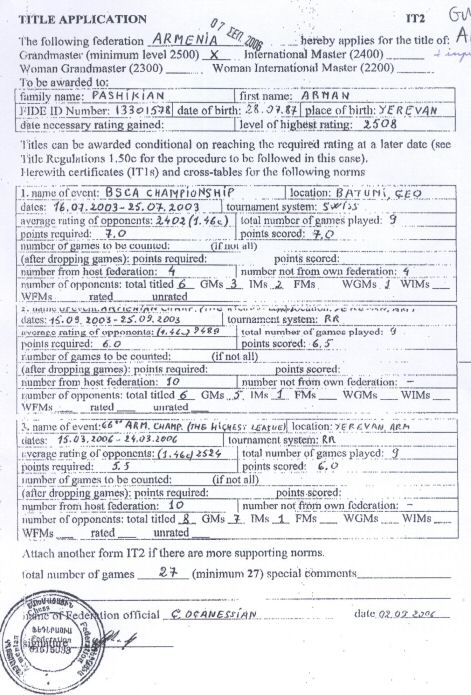 TITLE APPLICATION IT2
07
2006
The following federation ARMENIA hereby applies for the title of:
Grandmaster (minimum level 2500) X International Master (2400)
Woman Grandmaster (2300) Woman International Master (2200)
To be awarded to:
family name: PASHIKIAN first name: ARMAN
FIDE ID Number: 13301578 date of birth: 28.07.87 place of birth: YEREVAN
date necessary rating gained: level of highest rating: 2508
Titles can be awarded conditional on reaching the required rating at a later date (see
Title Regulations 1.50c for the procedure to be followed in this case).
Herewith certificates (IT1s) and cross-tables for the following norms
1. name of event: BSCA CHAMPIONSHIP location: BATUMI, GEO
dates: 16.07.2003-25.07.2003 tournament system: SWISS
average rating of opponents: 2402 (1.46c) total number of games played: 9
points required: 7.0 points scored: 7,0
number of games to be counted: (if not all)
(after dropping games): points required: points scored:
number from host federation: 4 number not from own federation: 4
number of opponents: total titled 6 GMs 3 IMs 2 FMs WGMs 1 WIMs
WFMs rated unrated
2. name of event:
dates: 15.09.2003-25.09.2003 tournament system: RR
average rating of opponents: total number of games played: 9
points required: 6.0 points scored: 6,5
number of games to be counted: (if not all)
(after dropping games): points required: points scored:
number from host federation: 10 number not from own federation: -
number of opponents: total titled 6 GMs 5 IMs 1 FMs WGMs WIMs
WFMs rated unrated
3. name of event: 66th ARM. CHAMP. (THE HIGHEST LEAGUE) location: YEREVAN, ARM
dates: 15.03.2006-24.03.2006 tournament system: RR
average rating of opponents: (1.46c) 2524 total number of games played: 9
points required: 5.5 points scored: 6,0
number of games to be counted: (if not all)
(after dropping games): points required: points scored:
number from host federation: 10 number not from own federation: -
number of opponents: total titled 8 GMs 7 IMs 1 FMs WGMs WIMs
WFMs rated unrated
Attach another form IT2 if there are more supporting norms.
total number of games 27 (minimum 27) special comments
name of Federation official G. OGANESSIAN date 02.09.2006
signature
Chess
Federation